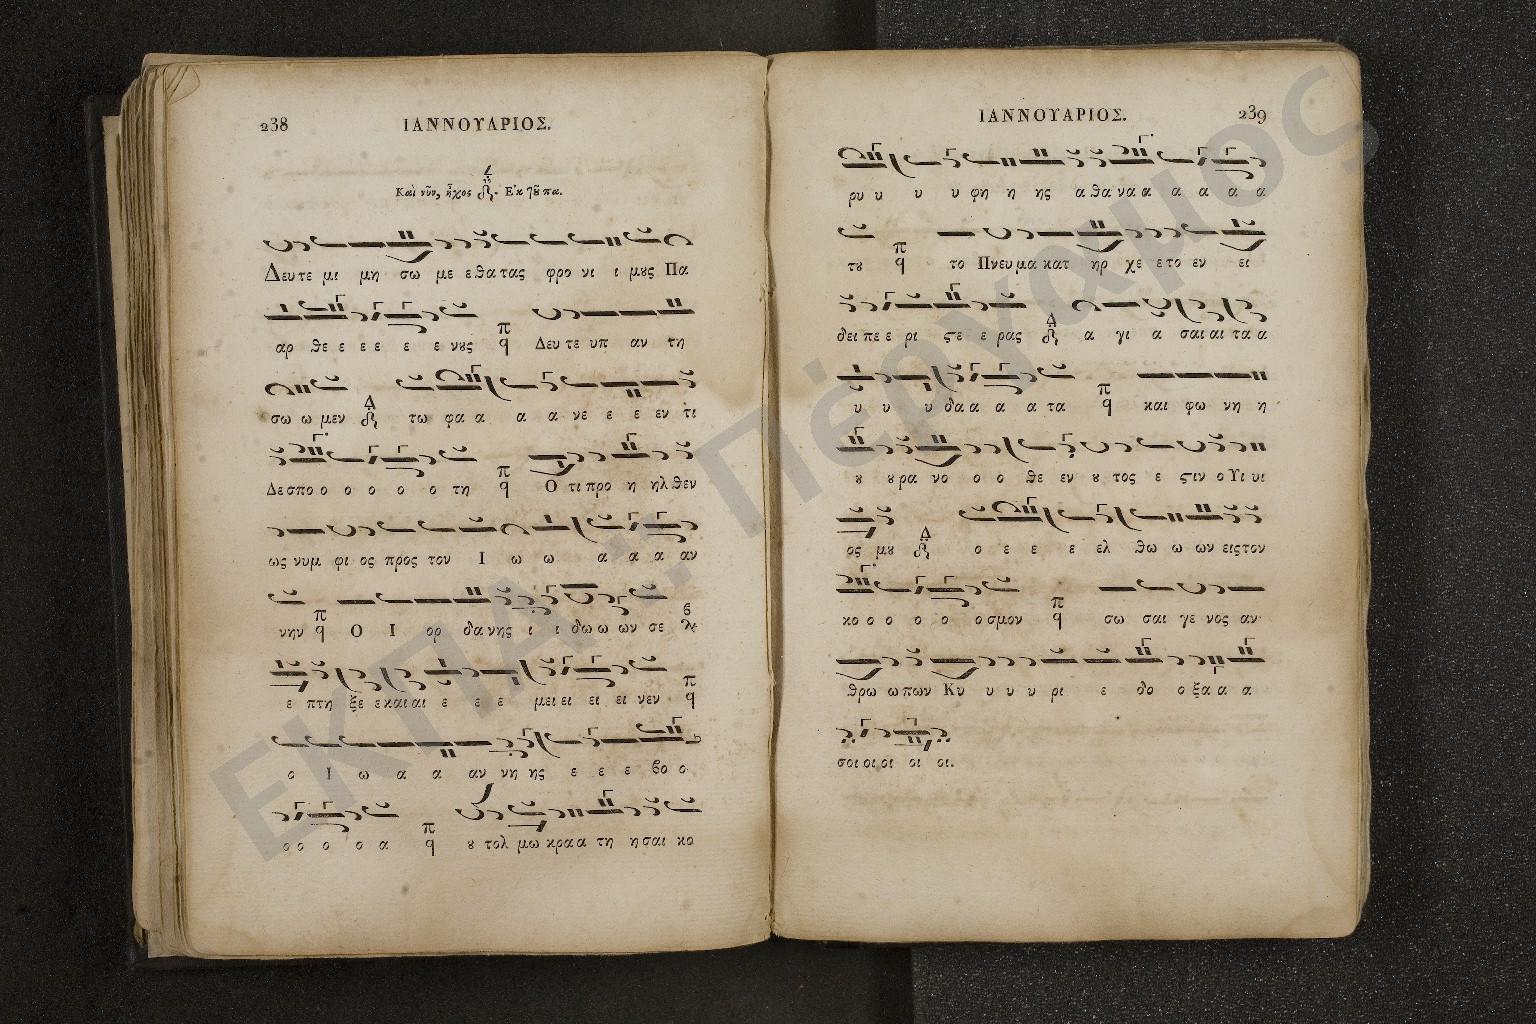 238
ΙΑΝΝΟΥΑΡΙΟΣ.
Καὶ νῦν, ἦχος
Δευτε μι μη σω με ε θα τας φρο νι ι μȣς Πα
αρ θε ε ε ε ε ε νȣς π q Δευ τε υπ αν τη
σω ω μεν Δ τω φα α α α νε ε ε εν τι
Δεσπο ο ο ο ο ο τη π q Ο τι προ η ηλ θεν
ως νυμ φι ος προς τον Ι ω ω α α α αν
νην π q Ο Ι ορ δα νης ι ι δω ω ων σε
ε πτη ξε ε και αι ε ε ε μει ει ει ει νεν π q
ο Ι ω α α αν νη ης ε ε ε βο ο
ο ο ο ο α π q ȣ τολ μω κρα α τη η σαι κο
ΙΑΝΝΟΥΑΡΙΟΣ.
239
ρυ υ υ υ φη η ης α θα να α α α α α
τȣ π q το Πνευ μα κατ ηρ χε ε το εν ει
δει πε ε ρι ϛε ε ε ρας Δ α γι α σαι αι τα α
υ υ υ δα α α α τα π q και φω νη η
ȣ ȣ ρα νο ο ο θε εν ȣ τος ε ϛιν ο Υι υι
ος μȣ Δ ο ε ε ε ελ θω ω ων εις τον
κο ο ο ο ο ο σμον π q σω σαι γε νος αν
θρω ω πων Κυ υ υ υ ρι ε δο ο ξα α α
σοι οι οι οι οι.
ΕΚΠΑ - Πέργαμος